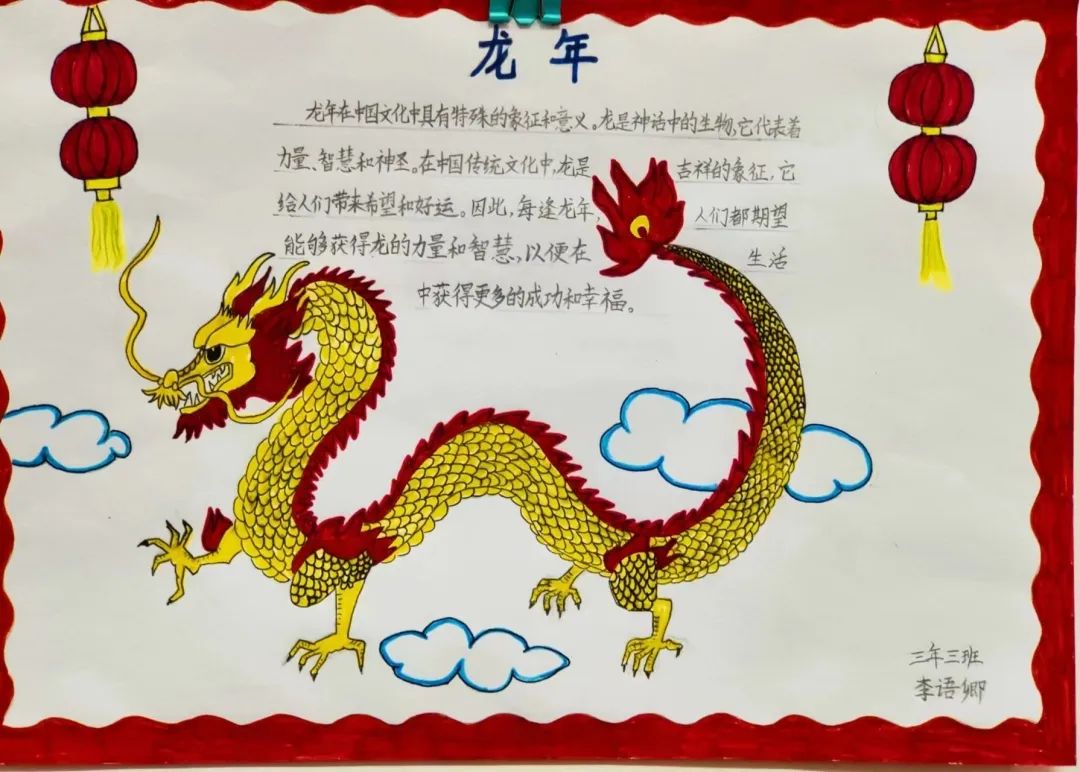 龙年
龙年在中国文化中具有特殊的象征和意义。龙是神话中的生物,它代表着
力量、智慧和神圣。在中国传统文化中,龙是吉祥的象征,它
给人们带来希望和好运。因此,每逢龙年,人们都期望
能够获得龙的力量和智慧,以便在生活
中获得更多的成功和幸福。
三年三班
李语卿